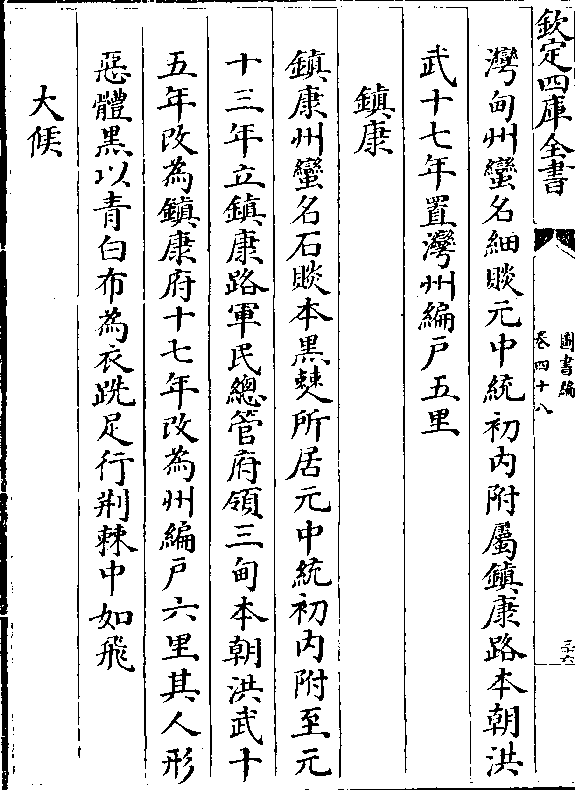 欽定四庫全書
圖書編
卷四十八
三十六
灣甸州蠻名細睒元中統初内附屬鎮康路本朝洪
武十七年置灣州編戶五里
鎮康
鎮康州蠻名石睒本黒僰所居元中統初内附至元
十三年立鎮康路軍民總管府領三甸本朝洪武十
五年改為鎮康府十七年改為州編戶六里其人形
惡體黒以青白布為衣跣足行荆棘中如飛
大候